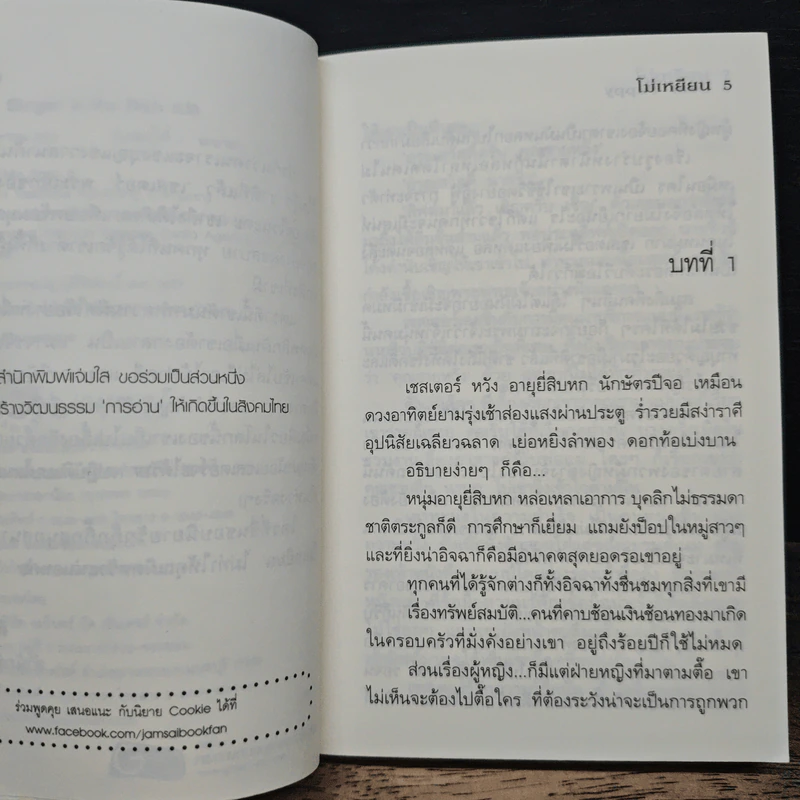 สำนักพิมพ์แจ่มใส ขอร่วมเป็นส่วนหนึ่ง
ร้างวัฒนธรรม 'การอ่าน' ให้เกิดขึ้นในสังคมไทย
ร่วมพูดคุย เสนอแนะ กับนิยาย Cookie ได้ที่
www.facebook.com/jamsaibookfan
โม่เหยียน 5
บทที่ 1
เชสเตอร์ หวัง อายุยี่สิบหก นักษัตรปีจอ เหมือน
ดวงอาทิตย์ยามรุ่งเช้าส่องแสงผ่านประตู ร่ำรวยมีสง่าราศี
อุปนิสัยเฉลียวฉลาด เย่อหยิ่งลำพอง ดอกท้อเบ่งบาน
อธิบายง่ายๆ ก็คือ...
หนุ่มอายุยี่สิบหก หล่อเหลาเอาการ บุคลิกไม่ธรรมดา
ชาติตระกูลก็ดี การศึกษาก็เยี่ยม แถมยังป็อปในหมู่สาวๆ
และที่ยิ่งน่าอิจฉาก็คือมีอนาคตสุดยอดรอเขาอยู่
ทุกคนที่ได้รู้จักต่างก็ทั้งอิจฉาทั้งชื่นชมทุกสิ่งที่เขามี
เรื่องทรัพย์สมบัติ...คนที่คาบช้อนเงินช้อนทองมาเกิด
ในครอบครัวที่มั่งคั่งอย่างเขา อยู่ถึงร้อยปีก็ใช้ไม่หมด
ส่วนเรื่องผู้หญิง...ก็มีแต่ฝ่ายหญิงที่มาตามตื๊อ เขา
ไม่เห็นจะต้องไปตื๊อใคร ที่ต้องระวังน่าจะเป็นการถูกพวก